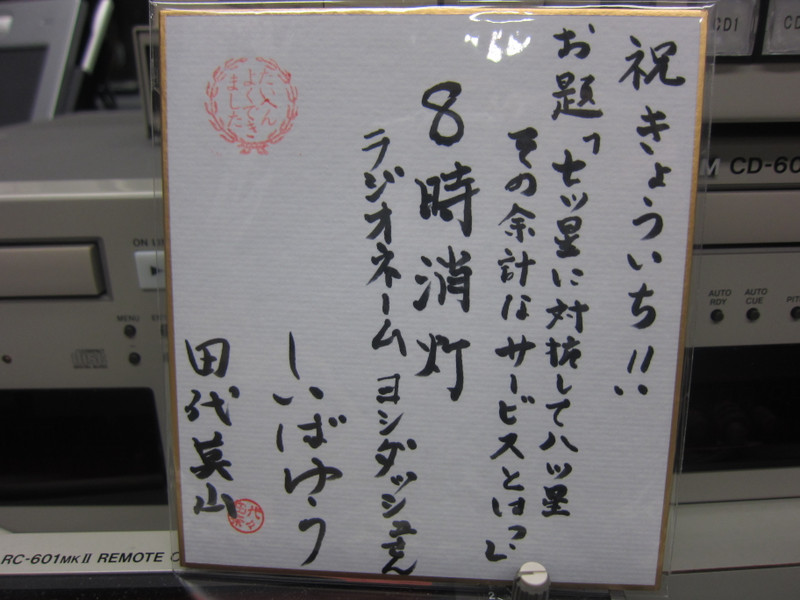 祝きょういち!!
お題「七ツ星に対抗して八ツ星
その余計なサービスとは?」
8時消灯
ラジオネーム ヨシダッシュさん
しいばゆう
田代英山
たいへん
よくでき
ました
CD1
CD-60
AUTO RDY
AUTO CUE
MENU
RC-601MKII REMOTE